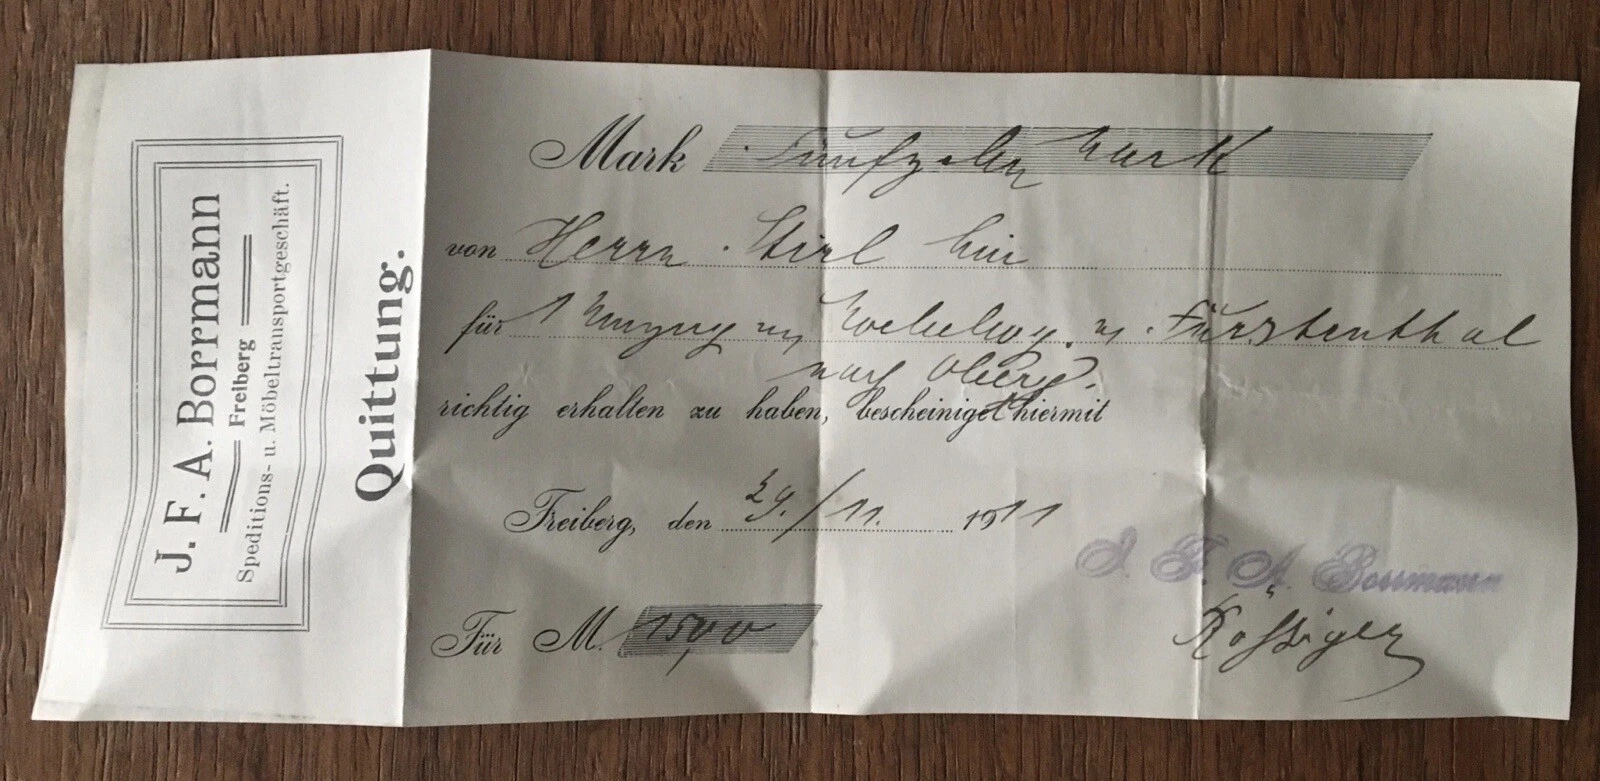 J. F. A. Borrmann
Freiberg
Speditions- u. Möbeltransportgeschäft.
Quittung.
Mark Fünfzehn Mark
von Herrn Stirl hier
für 1 Umzug v. n. Fürstenthal
nach
richtig erhalten zu haben, bescheiniget hiermit
Freiberg, den 29./11. 1911
J. F. A. Borrmann
Für M. 15,00
Rößiger